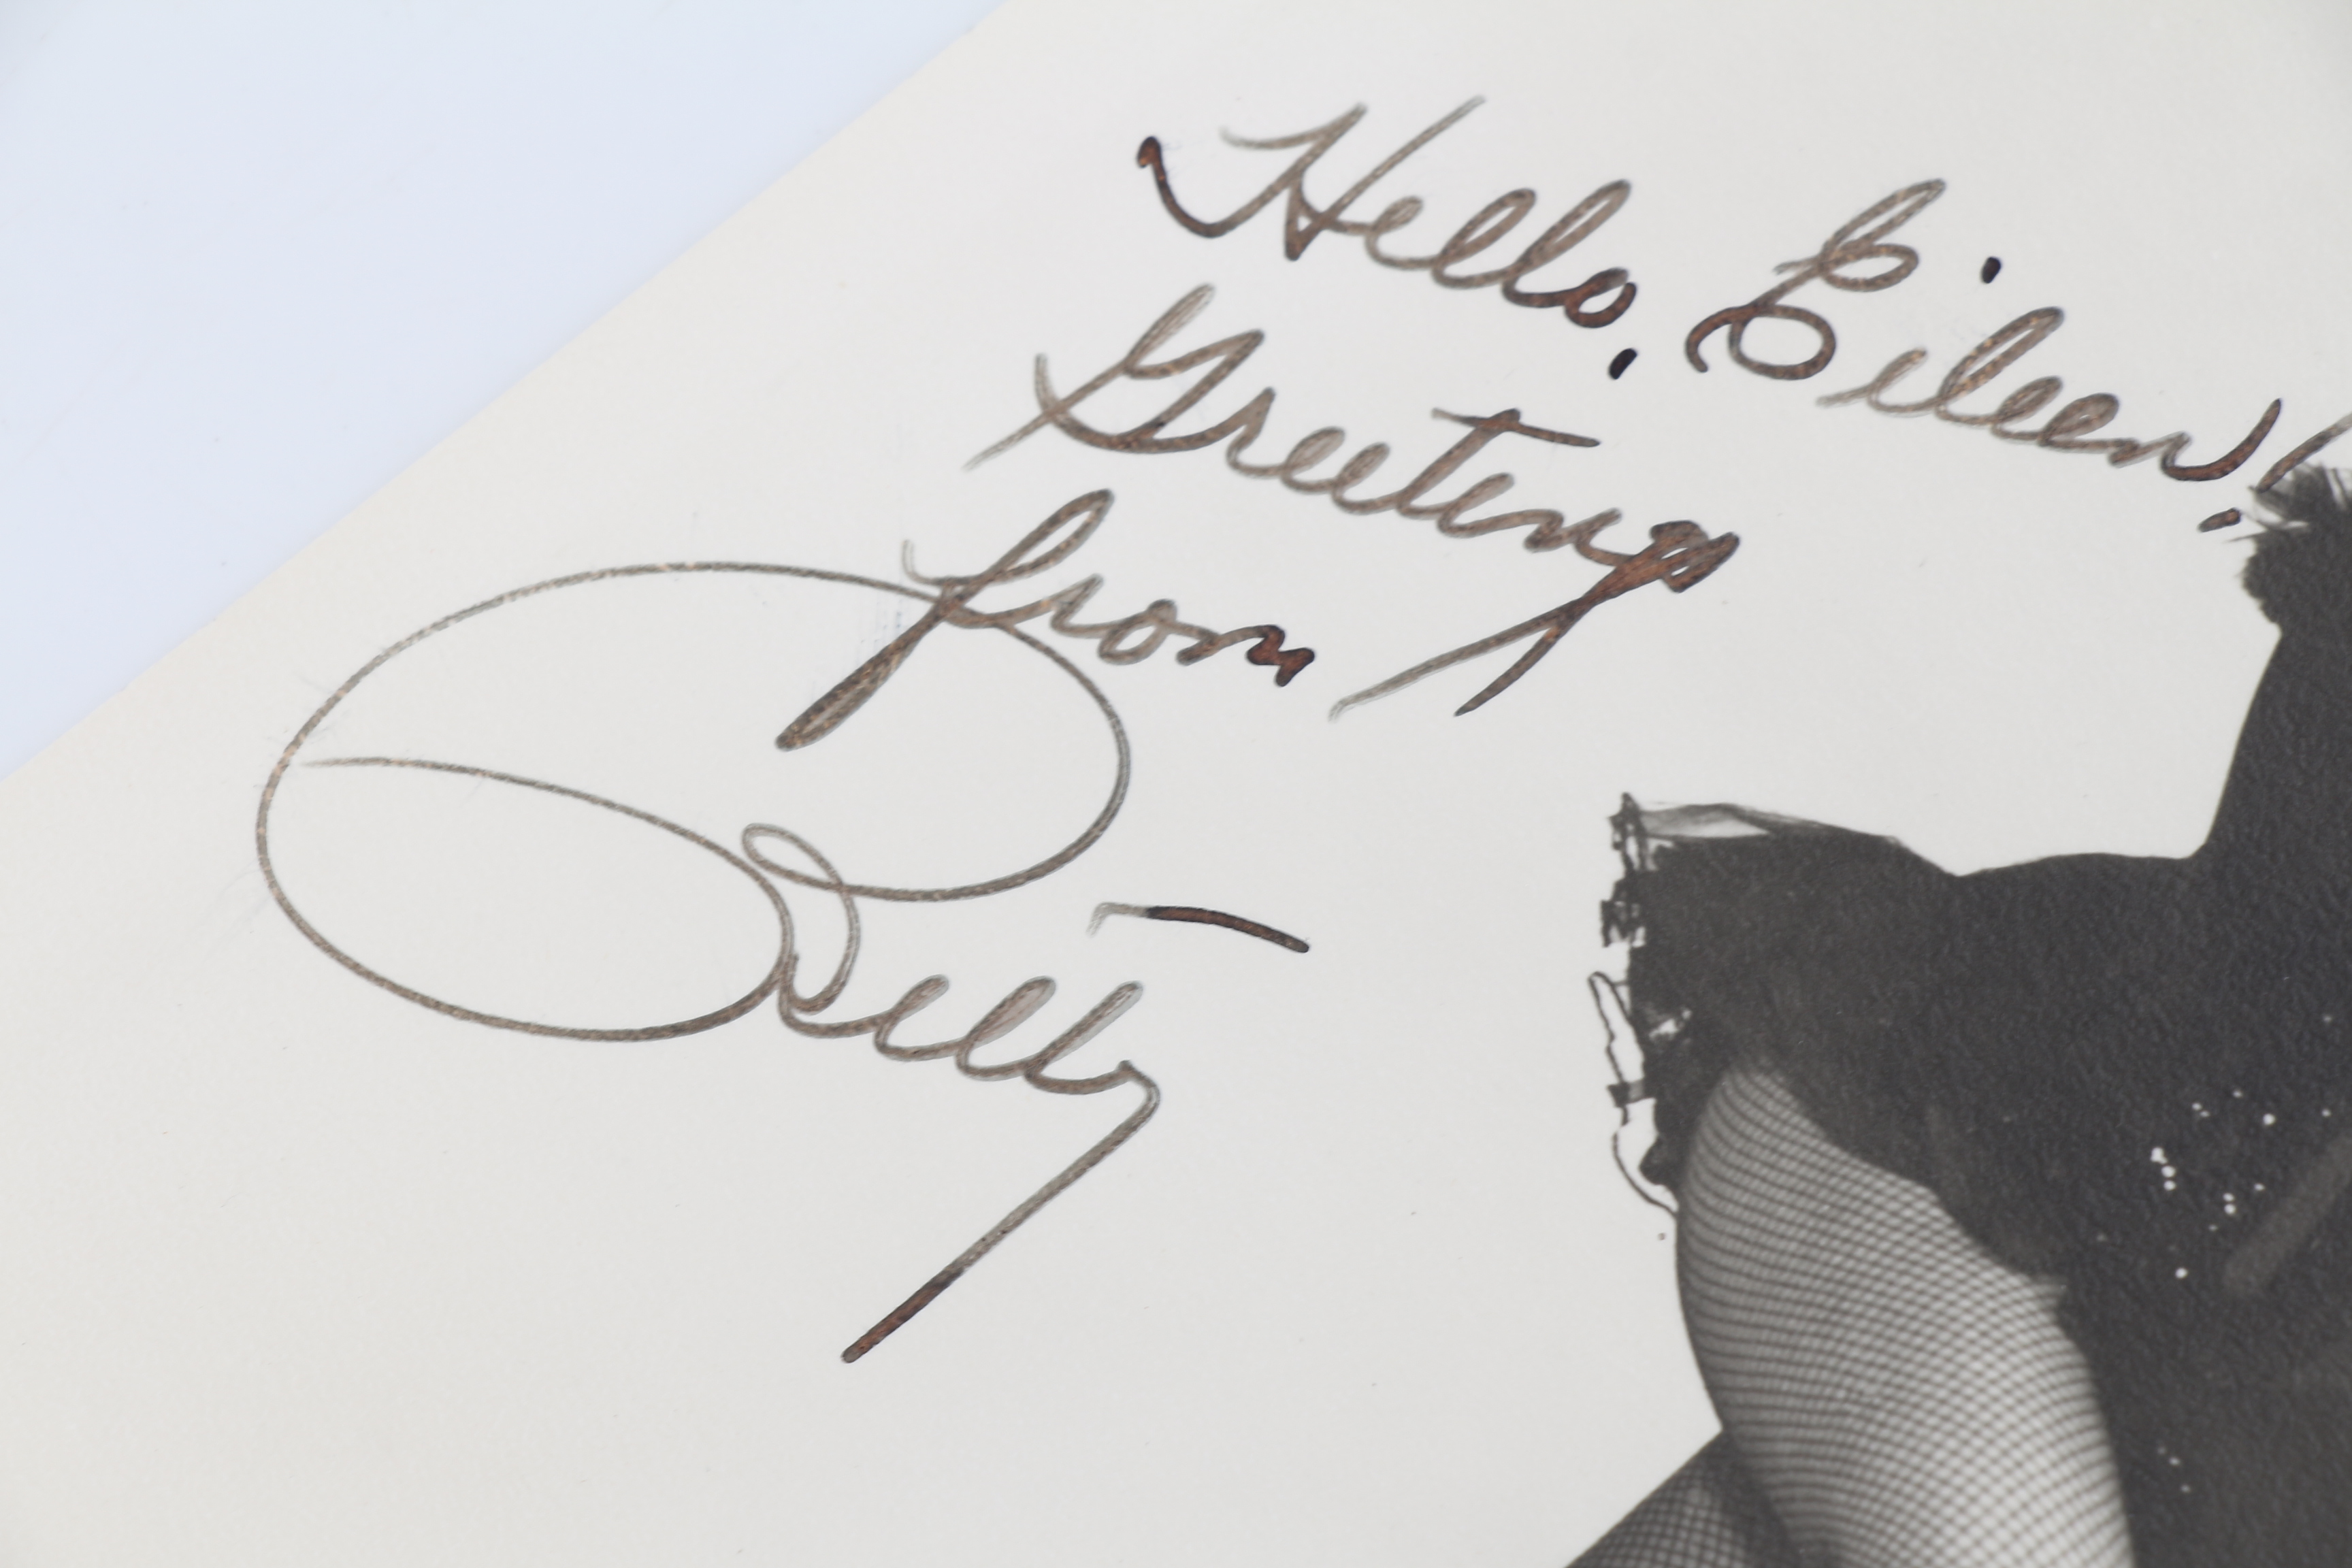 Hello, Eileen!
Greetings
from
Betty